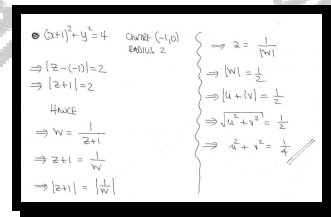 (x+1)²+y²=4 CENTRE (-1,0)
RADIUS 2
⇒ |z-(-1)|=2
⇒ |z+1|=2
HENCE
⇒ w = 1/(z+1)
⇒ z+1 = 1/w
⇒ |z+1| = |1/w|
⇒ 2 = 1/|w|
⇒ |w| = 1/2
⇒ |u+iv| = 1/2
⇒ √(u²+v²) = 1/2
⇒ u²+v² = 1/4